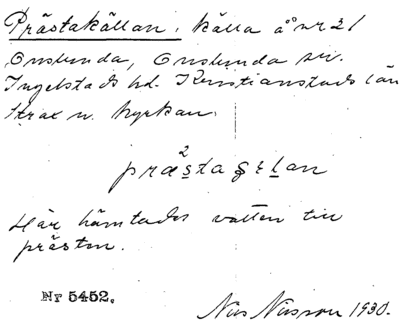 Prästakällan, källa å nr 21
Onslunda, Onslunda sn.
Ingelstads hd. Kristianstads län
Strax n. kyrkan.
Här hämtades vatten till
prästen.
Nr 5452.
Nils Nilsson 1930.